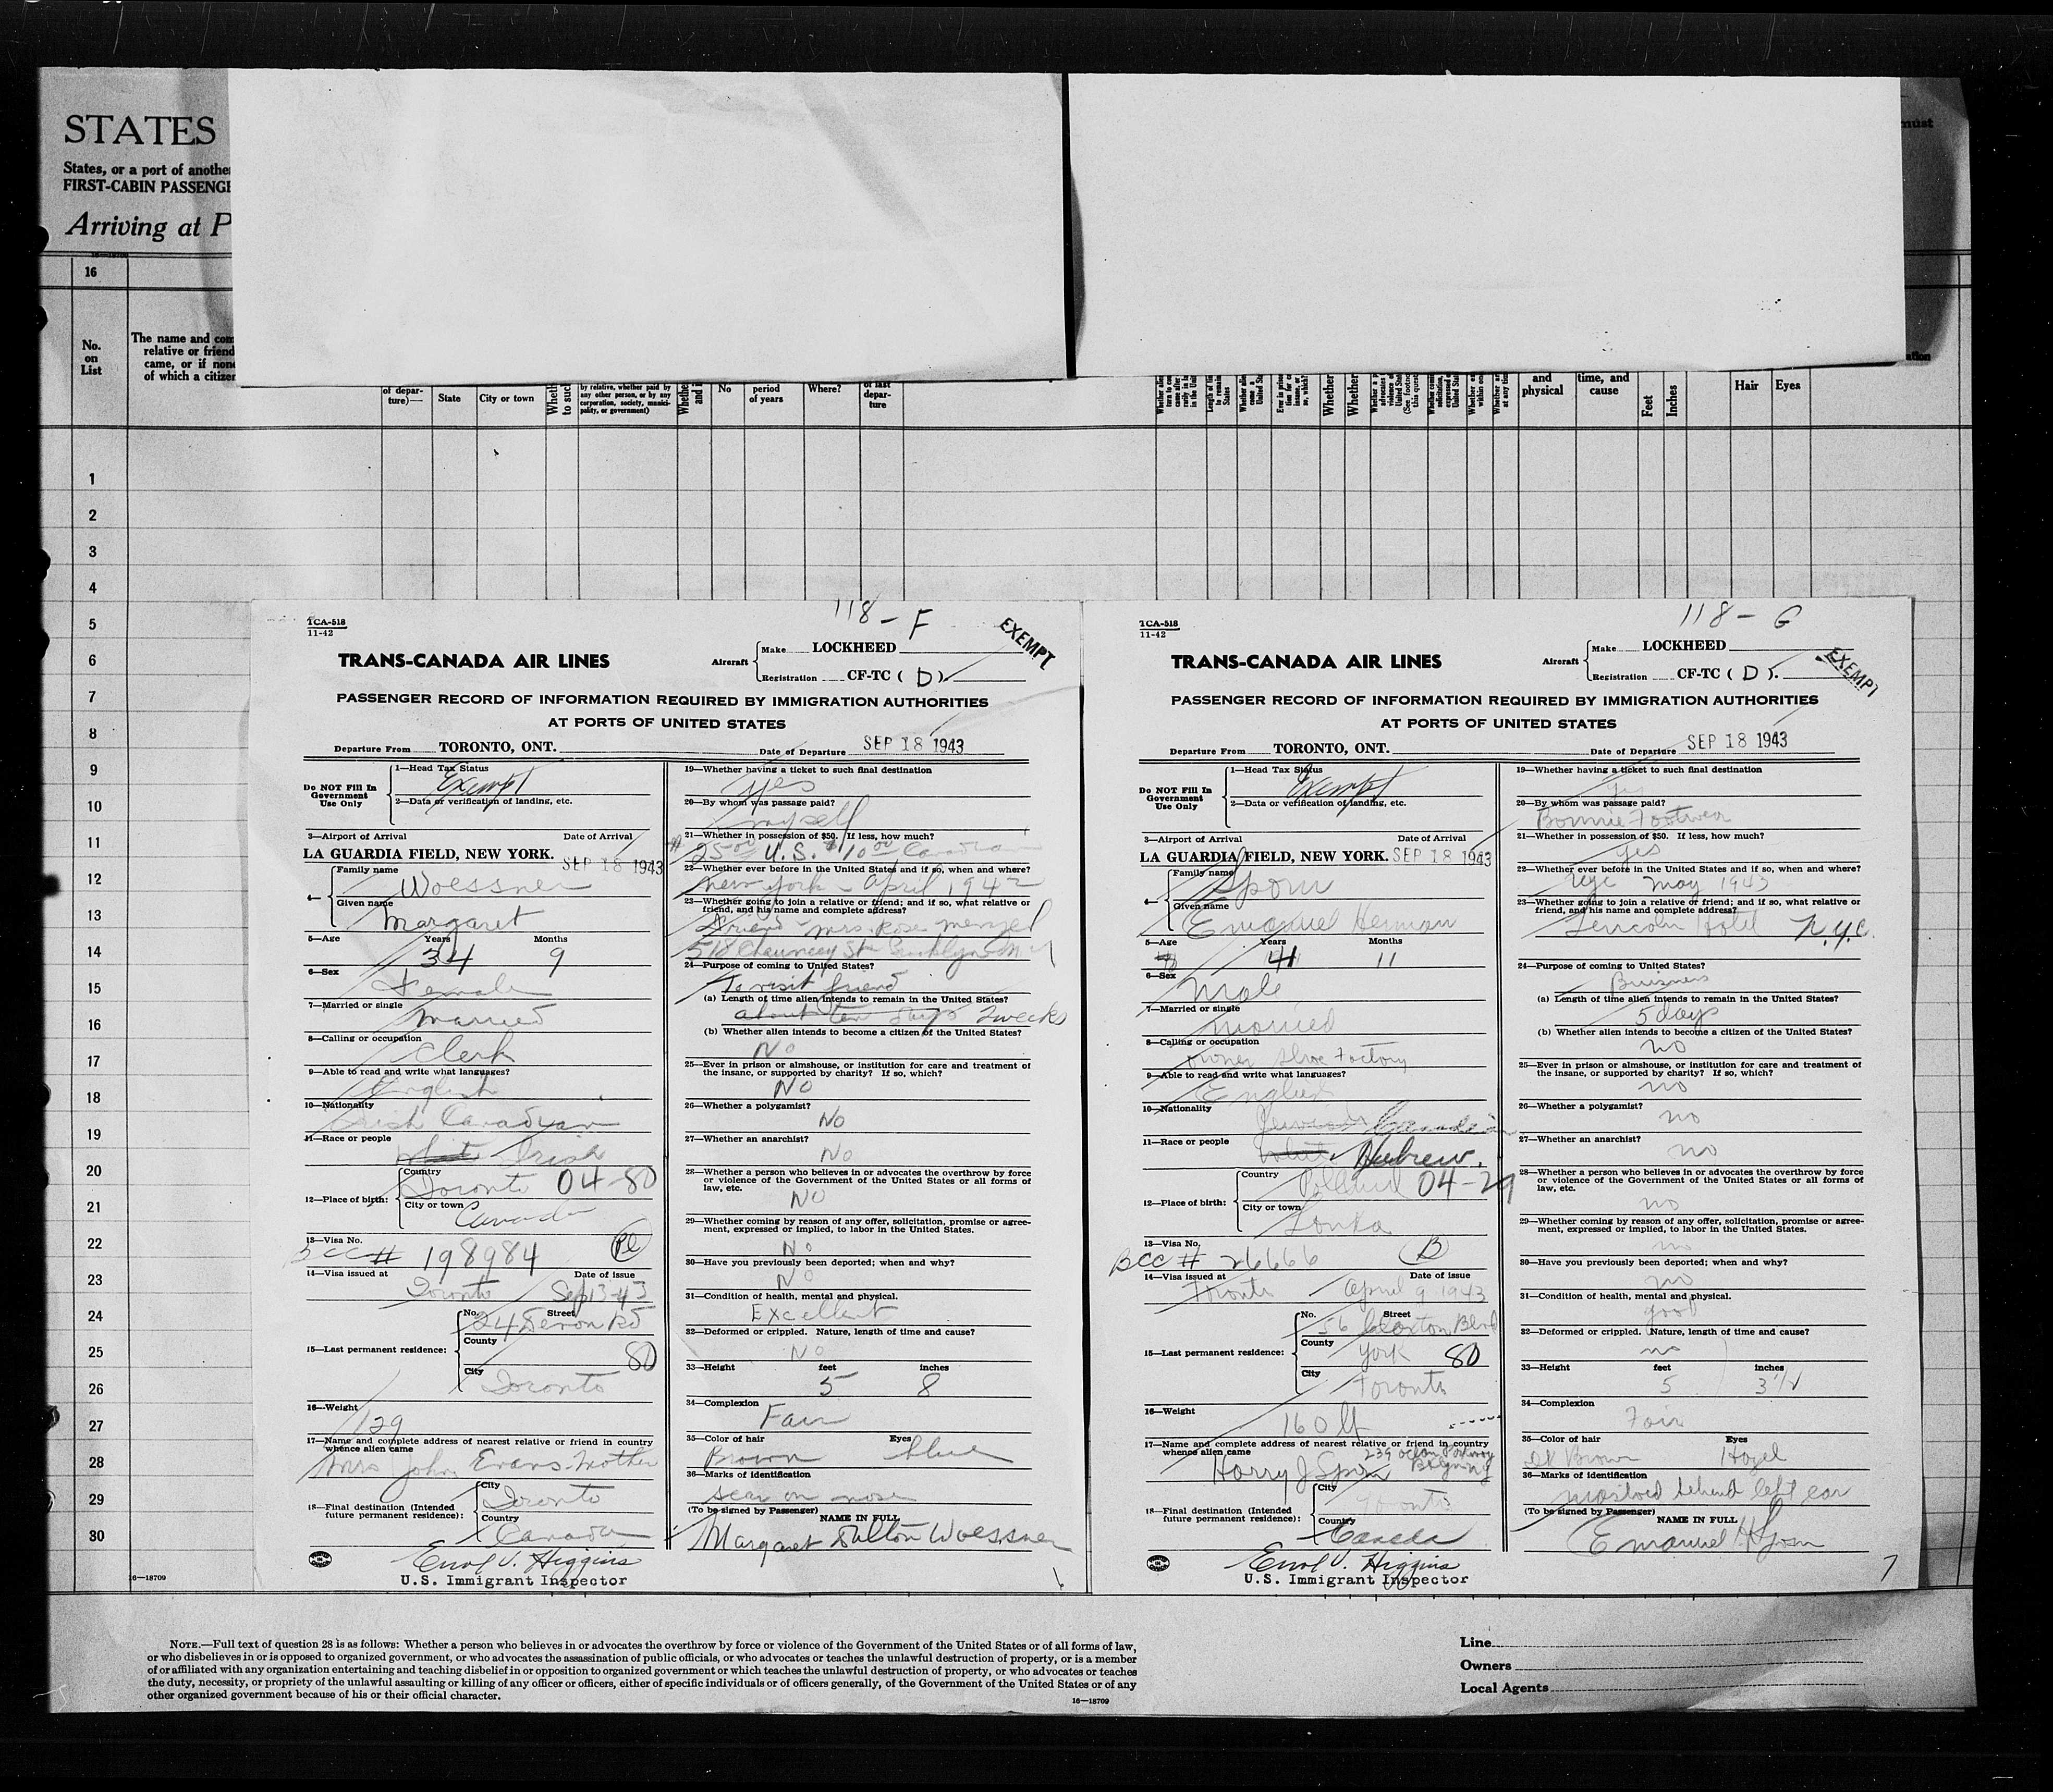 STATES
States, or a port of another
FIRST-CABIN PASSENGE
Arriving at P
must
16
No. on List
The name and com
relative or friend
came, or if none
of which a citizen
of depar-
ture)—
State
City or town
Wheth
to suc
by relative, whether paid by
any other person, or by any
corporation, society, munici-
pality, or government)
Whethe
and i
No
period
of years
Where?
of last
depar-
ture
Whether
Whether
and
physical
time, and
cause
Feet
Inches
Hair
Eyes
1
2
3
4
5
6
7
8
9
10
11
12
13
14
15
16
17
18
19
20
21
22
23
24
25
26
27
28
29
30
16—18709
118 - F
TCA-518
11-42
EXEMPT
TRANS-CANADA AIR LINES
Aircraft
Make LOCKHEED
Registration CF-TC ( D ).
PASSENGER RECORD OF INFORMATION REQUIRED BY IMMIGRATION AUTHORITIES
AT PORTS OF UNITED STATES
Departure From TORONTO, ONT. Date of Departure SEP 18 1943
Do NOT Fill In
Government
Use Only
1—Head Tax Status
Exempt
2—Data or verification of landing, etc.
3—Airport of Arrival Date of Arrival
LA GUARDIA FIELD, NEW YORK. SEP 18 1943
4— Family name
Woessner
Given name
Margaret
5—Age Years Months
34 9
6—Sex
Female
7—Married or single
Married
8—Calling or occupation
Clerk
9—Able to read and write what languages?
English
10—Nationality
Irish Canadian
11—Race or people
White Irish
12—Place of birth:
Country
Toronto 04-80
City or town
Canada
13—Visa No.
BCC # 198984 (Pl)
14—Visa issued at Date of issue
Toronto Sep 13-43
15—Last permanent residence:
No. Street
24 Devon Rd
County
80
City
Toronto
16—Weight
129
17—Name and complete address of nearest relative or friend in country
whence alien came
Mrs John Evans-Mother
18—Final destination (Intended
future permanent residence):
City
Toronto
Country
Canada
Errol J. Higgins
U.S. Immigrant Inspector
19—Whether having a ticket to such final destination
yes
20—By whom was passage paid?
myself
21—Whether in possession of $50. If less, how much?
$ 25.00 U.S. $10.00 Canadian
22—Whether ever before in the United States and if so, when and where?
New York - April 1942
23—Whether going to join a relative or friend; and if so, what relative or
friend, and his name and complete address?
Friend - Mrs. Rose Menzel
518 Chauncey St Brooklyn N Y
24—Purpose of coming to United States?
To visit friend
(a) Length of time alien intends to remain in the United States?
about ten days 2 weeks
(b) Whether alien intends to become a citizen of the United States?
No
25—Ever in prison or almshouse, or institution for care and treatment of
the insane, or supported by charity? If so, which?
No
26—Whether a polygamist?
No
27—Whether an anarchist?
No
28—Whether a person who believes in or advocates the overthrow by force
or violence of the Government of the United States or all forms of
law, etc.
No
29—Whether coming by reason of any offer, solicitation, promise or agree-
ment, expressed or implied, to labor in the United States.
No
30—Have you previously been deported; when and why?
No
31—Condition of health, mental and physical.
Excellent
32—Deformed or crippled. Nature, length of time and cause?
No
33—Height feet inches
5 8
34—Complexion
Fair
35—Color of hair Eyes
Brown blue
36—Marks of identification
scar on nose
(To be signed by Passenger)
NAME IN FULL
Margaret Dalton Woessner
118 - G
TCA-518
11-42
EXEMPT
TRANS-CANADA AIR LINES
Aircraft
Make LOCKHEED
Registration CF-TC ( D ).
PASSENGER RECORD OF INFORMATION REQUIRED BY IMMIGRATION AUTHORITIES
AT PORTS OF UNITED STATES
Departure From TORONTO, ONT. Date of Departure SEP 18 1943
Do NOT Fill In
Government
Use Only
1—Head Tax Status
Exempt
2—Data or verification of landing, etc.
3—Airport of Arrival Date of Arrival
LA GUARDIA FIELD, NEW YORK. SEP 18 1943
4— Family name
Spom
Given name
Emanuel Herman
5—Age Years Months
41 11
6—Sex
Male
7—Married or single
Married
8—Calling or occupation
owner shoe factory
9—Able to read and write what languages?
English
10—Nationality
Canadian
11—Race or people
White Hebrew.
12—Place of birth:
Country
Poland 04-29
City or town
13—Visa No.
BCC # 26666 (B)
14—Visa issued at Date of issue
Toronto April 9 1943
15—Last permanent residence:
No. Street
56 Claxton Blvd
County
York 80
City
Toronto
16—Weight
160 lb
17—Name and complete address of nearest relative or friend in country
whence alien came
Harry J Spom 239 Ocean Parkway
18—Final destination (Intended
future permanent residence):
City
Toronto
Country
Canada
Errol J. Higgins
U.S. Immigrant Inspector
19—Whether having a ticket to such final destination
yes
20—By whom was passage paid?
Bonnie Footwear
21—Whether in possession of $50. If less, how much?
yes
22—Whether ever before in the United States and if so, when and where?
nyc May 1943
23—Whether going to join a relative or friend; and if so, what relative or
friend, and his name and complete address?
Lincoln Hotel N.Y.C.
24—Purpose of coming to United States?
Business
(a) Length of time alien intends to remain in the United States?
5 days
(b) Whether alien intends to become a citizen of the United States?
no
25—Ever in prison or almshouse, or institution for care and treatment of
the insane, or supported by charity? If so, which?
no
26—Whether a polygamist?
no
27—Whether an anarchist?
no
28—Whether a person who believes in or advocates the overthrow by force
or violence of the Government of the United States or all forms of
law, etc.
no
29—Whether coming by reason of any offer, solicitation, promise or agree-
ment, expressed or implied, to labor in the United States.
no
30—Have you previously been deported; when and why?
no
31—Condition of health, mental and physical.
good
32—Deformed or crippled. Nature, length of time and cause?
no
33—Height feet inches
5 3 1/2
34—Complexion
Fair
35—Color of hair Eyes
dk Brown Hazel
36—Marks of identification
mastoid behind left ear
(To be signed by Passenger)
NAME IN FULL
Emanuel H Spom
7
NOTE.—Full text of question 28 is as follows: Whether a person who believes in or advocates the overthrow by force or violence of the Government of the United States or of all forms of law,
or who disbelieves in or is opposed to organized government, or who advocates the assassination of public officials, or who advocates or teaches the unlawful destruction of property, or is a member
of or affiliated with any organization entertaining and teaching disbelief in or opposition to organized government or which teaches the unlawful destruction of property, or who advocates or teaches
the duty, necessity, or propriety of the unlawful assaulting or killing of any officer or officers, either of specific individuals or of officers generally, of the Government of the United States or of any
other organized government because of his or their official character.
16—18709
Line
Owners
Local Agents